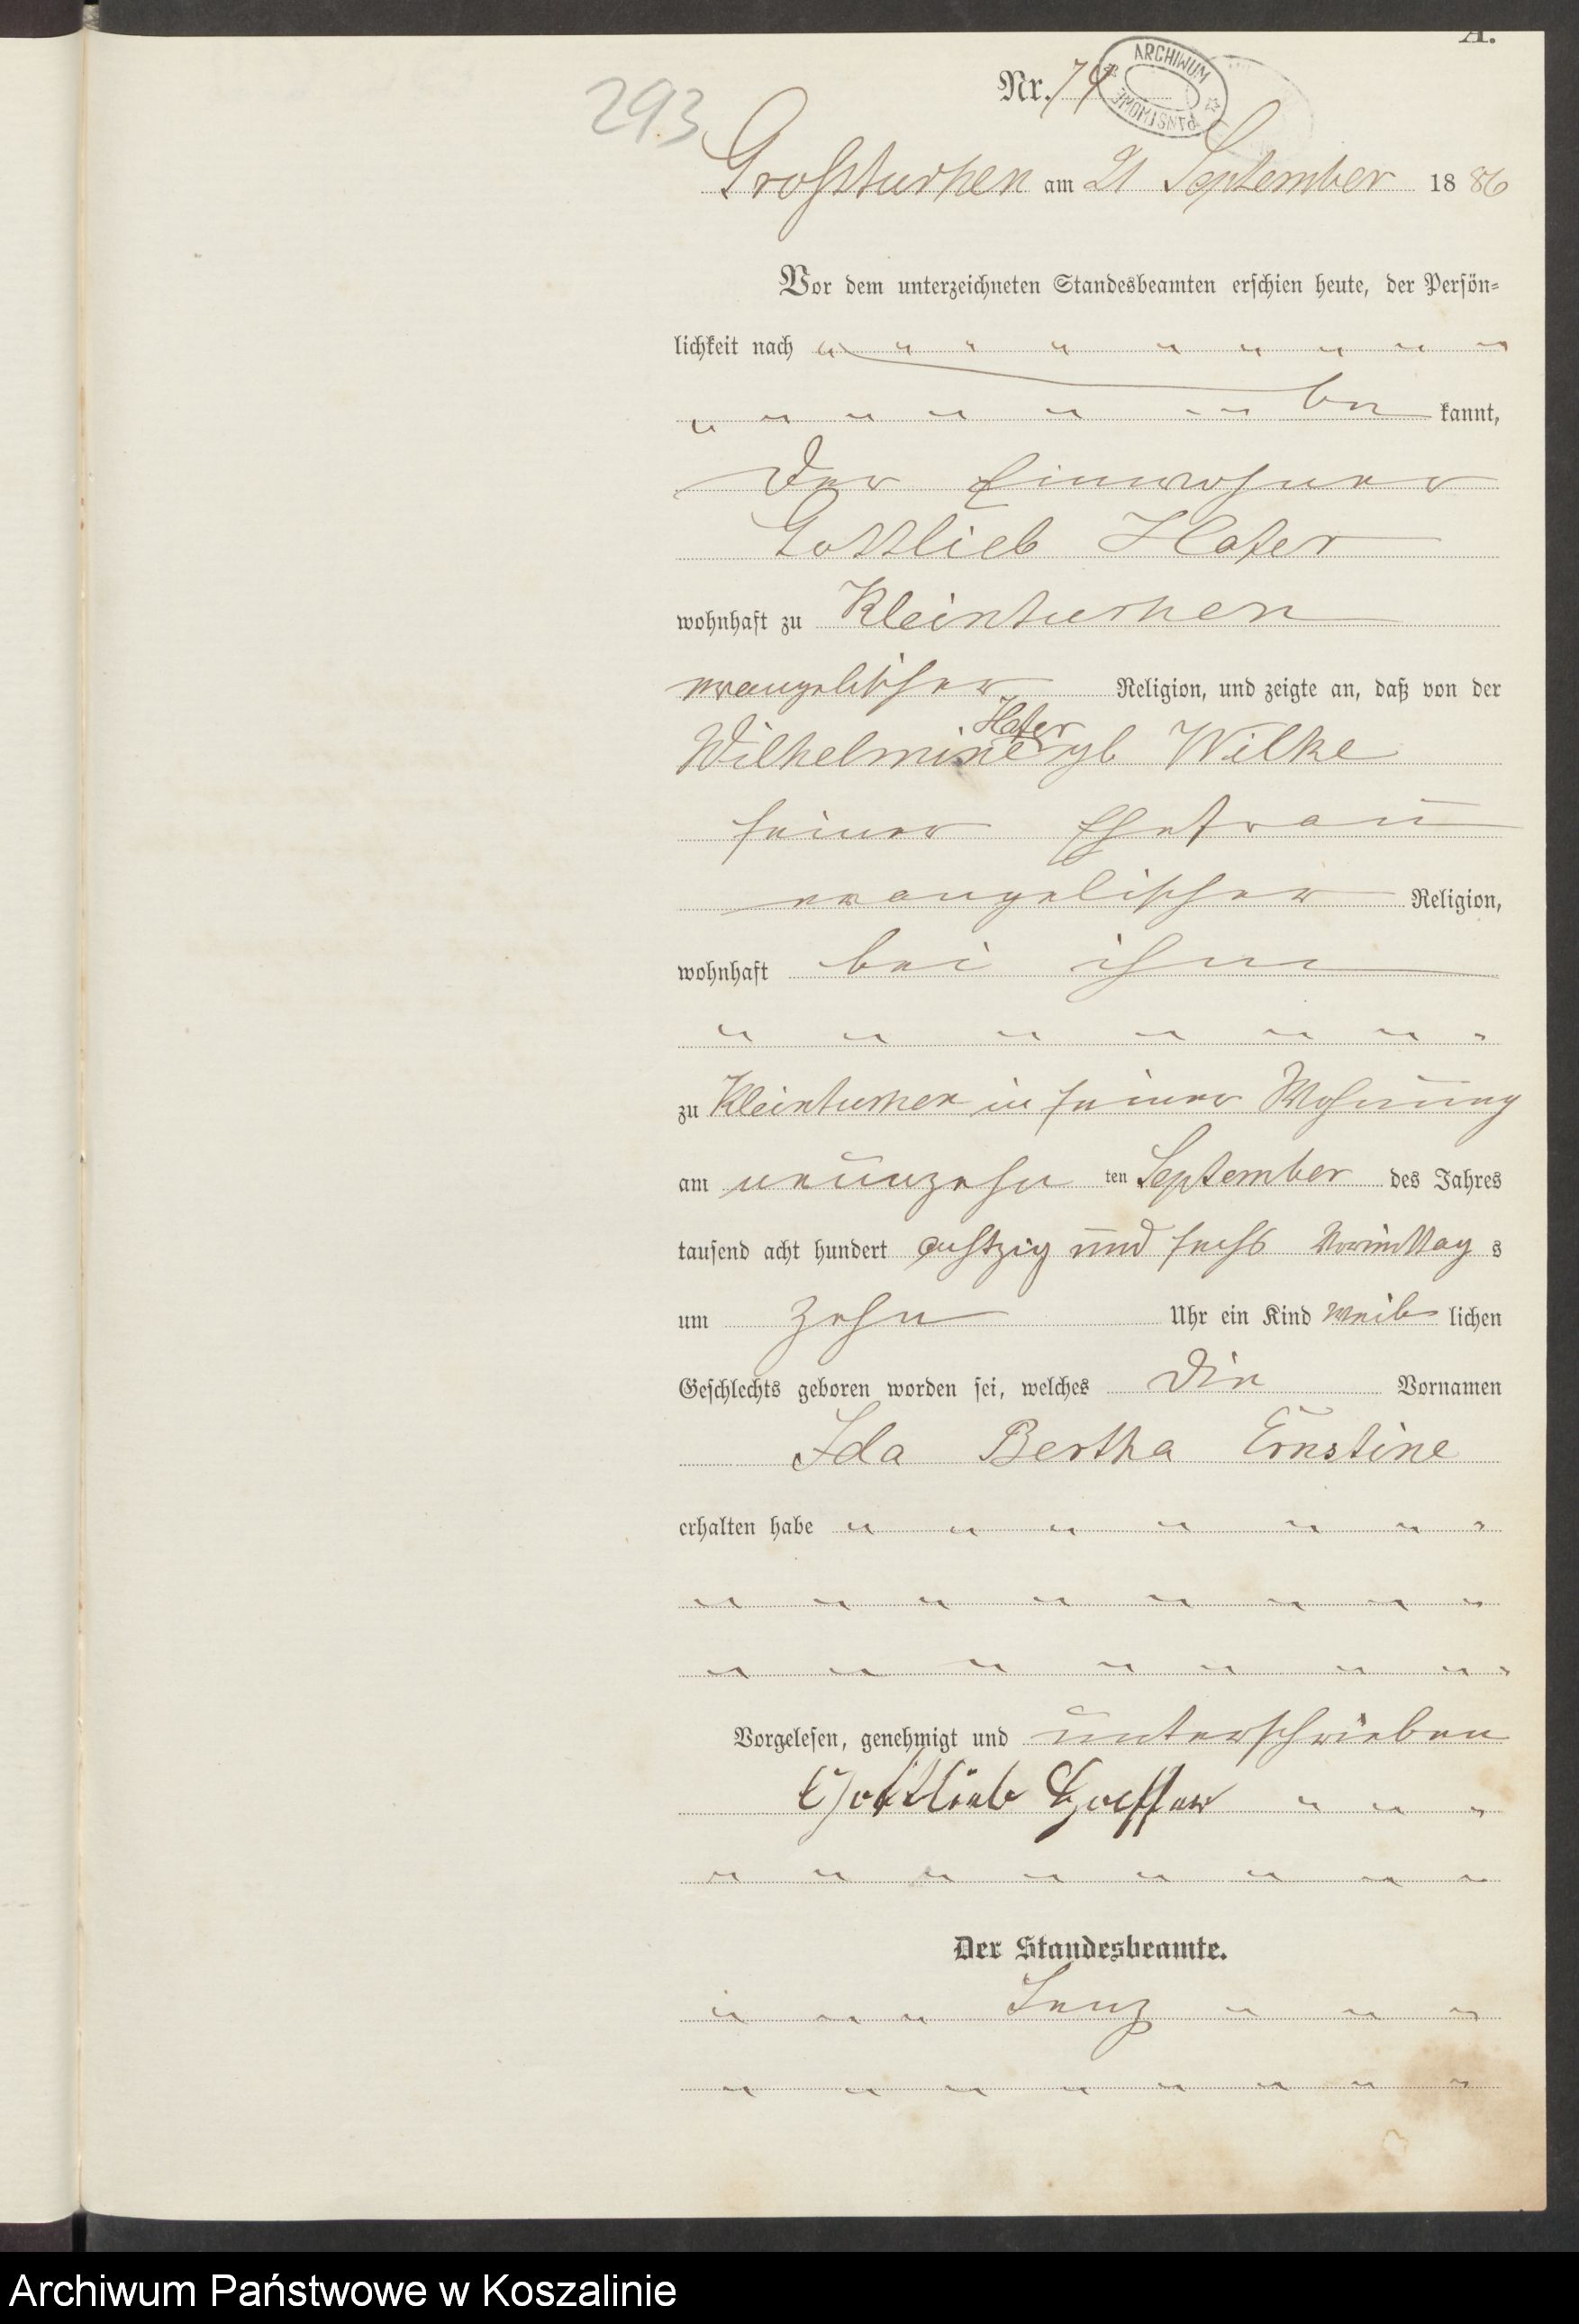 A.
293
Nr. 74
ARCHIWUM PAŃSTWOWE
Großtuchen am 21 September 1886
Vor dem unterzeichneten Standesbeamten erschien heute, der Persön-
lichkeit nach " " " " " " " " "
" " " " " " " be kannt,
der Einwohner
Gottlieb Hafer
wohnhaft zu Kleintuchen
evangelischer Religion, und zeigte an, daß von der
Hafer
Wilhelmine gb Wilke
seiner Ehefrau
evangelischer Religion,
wohnhaft bei ihm
" " " " " " "
zu Kleintuchen in seiner Wohnung
am neunzehn ten September des Jahres
tausend acht hundert achtzig und sechs Vormittag s
um zehn Uhr ein Kind weib lichen
Geschlechts geboren worden sei, welches die Vornamen
Ida Bertha Ernstine
erhalten habe " " " " " " "
" " " " " " " "
" " " " " " " "
Vorgelesen, genehmigt und unterschrieben
Gottlieb Haffer " " "
" " " " " " " "
Der Standesbeamte.
" " " Lenz " " "
" " " " " " " "
Archiwum Państwowe w Koszalinie